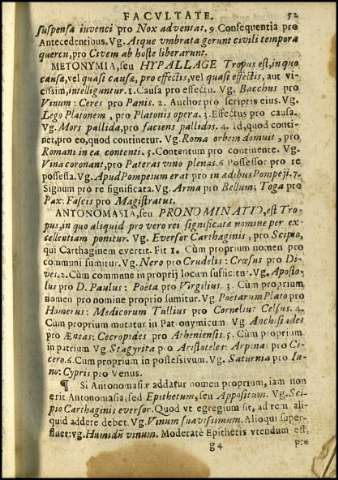 FACVLTATE. 52
suspensa invenci pro Nox adventat. 9. Consequentia pro
Antecedentibus. Vg. Atque umbrata gerunt civili tempora
quercu, pro Civem ab hoste liberarunt.
METONYMIA, seu HYPALLAGE Tropus est, in quo
causa, vel quasi causa, pro effectis, vel quasi effectis, aut vi-
cissim, intelliguntur. 1. Causa pro effectu. Vg. Bacchus pro
Vinum: Ceres pro Panis. 2. Author pro scriptis eius. Vg.
Lego Platonem, pro Platonis opera. 3. Effectus pro causa.
Vg. Mors pallida, pro faciens pallidos. 4. Id, quod conti-
net, pro eo, quod continetur. Vg. Roma orbem domuit, pro
Romani in ea contenti. 5. Contentum pro continente. Vg.
Vina coronant, pro Pateras vino plenas. 6. Possessor pro re
possessa. Vg. Apud Pompeium erat pro in ædibus Pompeij. 7.
Signum pro re significata. Vg. Arma pro Bellum; Toga pro
Pax: Fascis pro Magistratus.
ANTONOMASIA, seu PRONOMINATIO, est Tro-
pus, in quo aliquid pro vero rei significatæ nomine per ex-
cellentiam ponitur. Vg. Eversor Carthaginis, pro Scipio,
qui Carthaginem evertit. Fit 1. Cùm proprium nomen pro
communi sumitur. Vg. Nero pro Crudelis: Crœsus pro Di-
ves. 2. Cùm commune in proprij locum sufficitur. Vg. Aposto-
lus pro D. Paulus: Poëta pro Virgilius. 3. Cùm proprium
nomen pro nomine proprio sumitur. Vg. Poëtarum Plato pro
Homerus: Medicorum Tullius pro Cornelius Celsus. 4.
Cùm proprium mutatur in Patronymicum. Vg. Anchisiades
pro Æneas: Cecropides pro Atheniensis. 5. Cùm proprium
in patrium Vg. Stagyrita pro Aristoteles: Arpinas pro Ci-
cero. 6. Cùm proprium in possessivum. Vg. Saturnia pro Iu-
no: Cypris pro Venus.
¶ Si Antonomasiæ addatur nomen proprium, iam non
erit Antonomasia, sed Epithetum, seu Appositum. Vg. Sci-
pio Carthaginis eversor. Quod vt egregium sit, ad rem ali-
quid addere debet. Vg. Vinum suavissimum. Alioqui super-
fluet: vg. Humidum vinum. Moderatè Epithetis vtendum est,
g 4